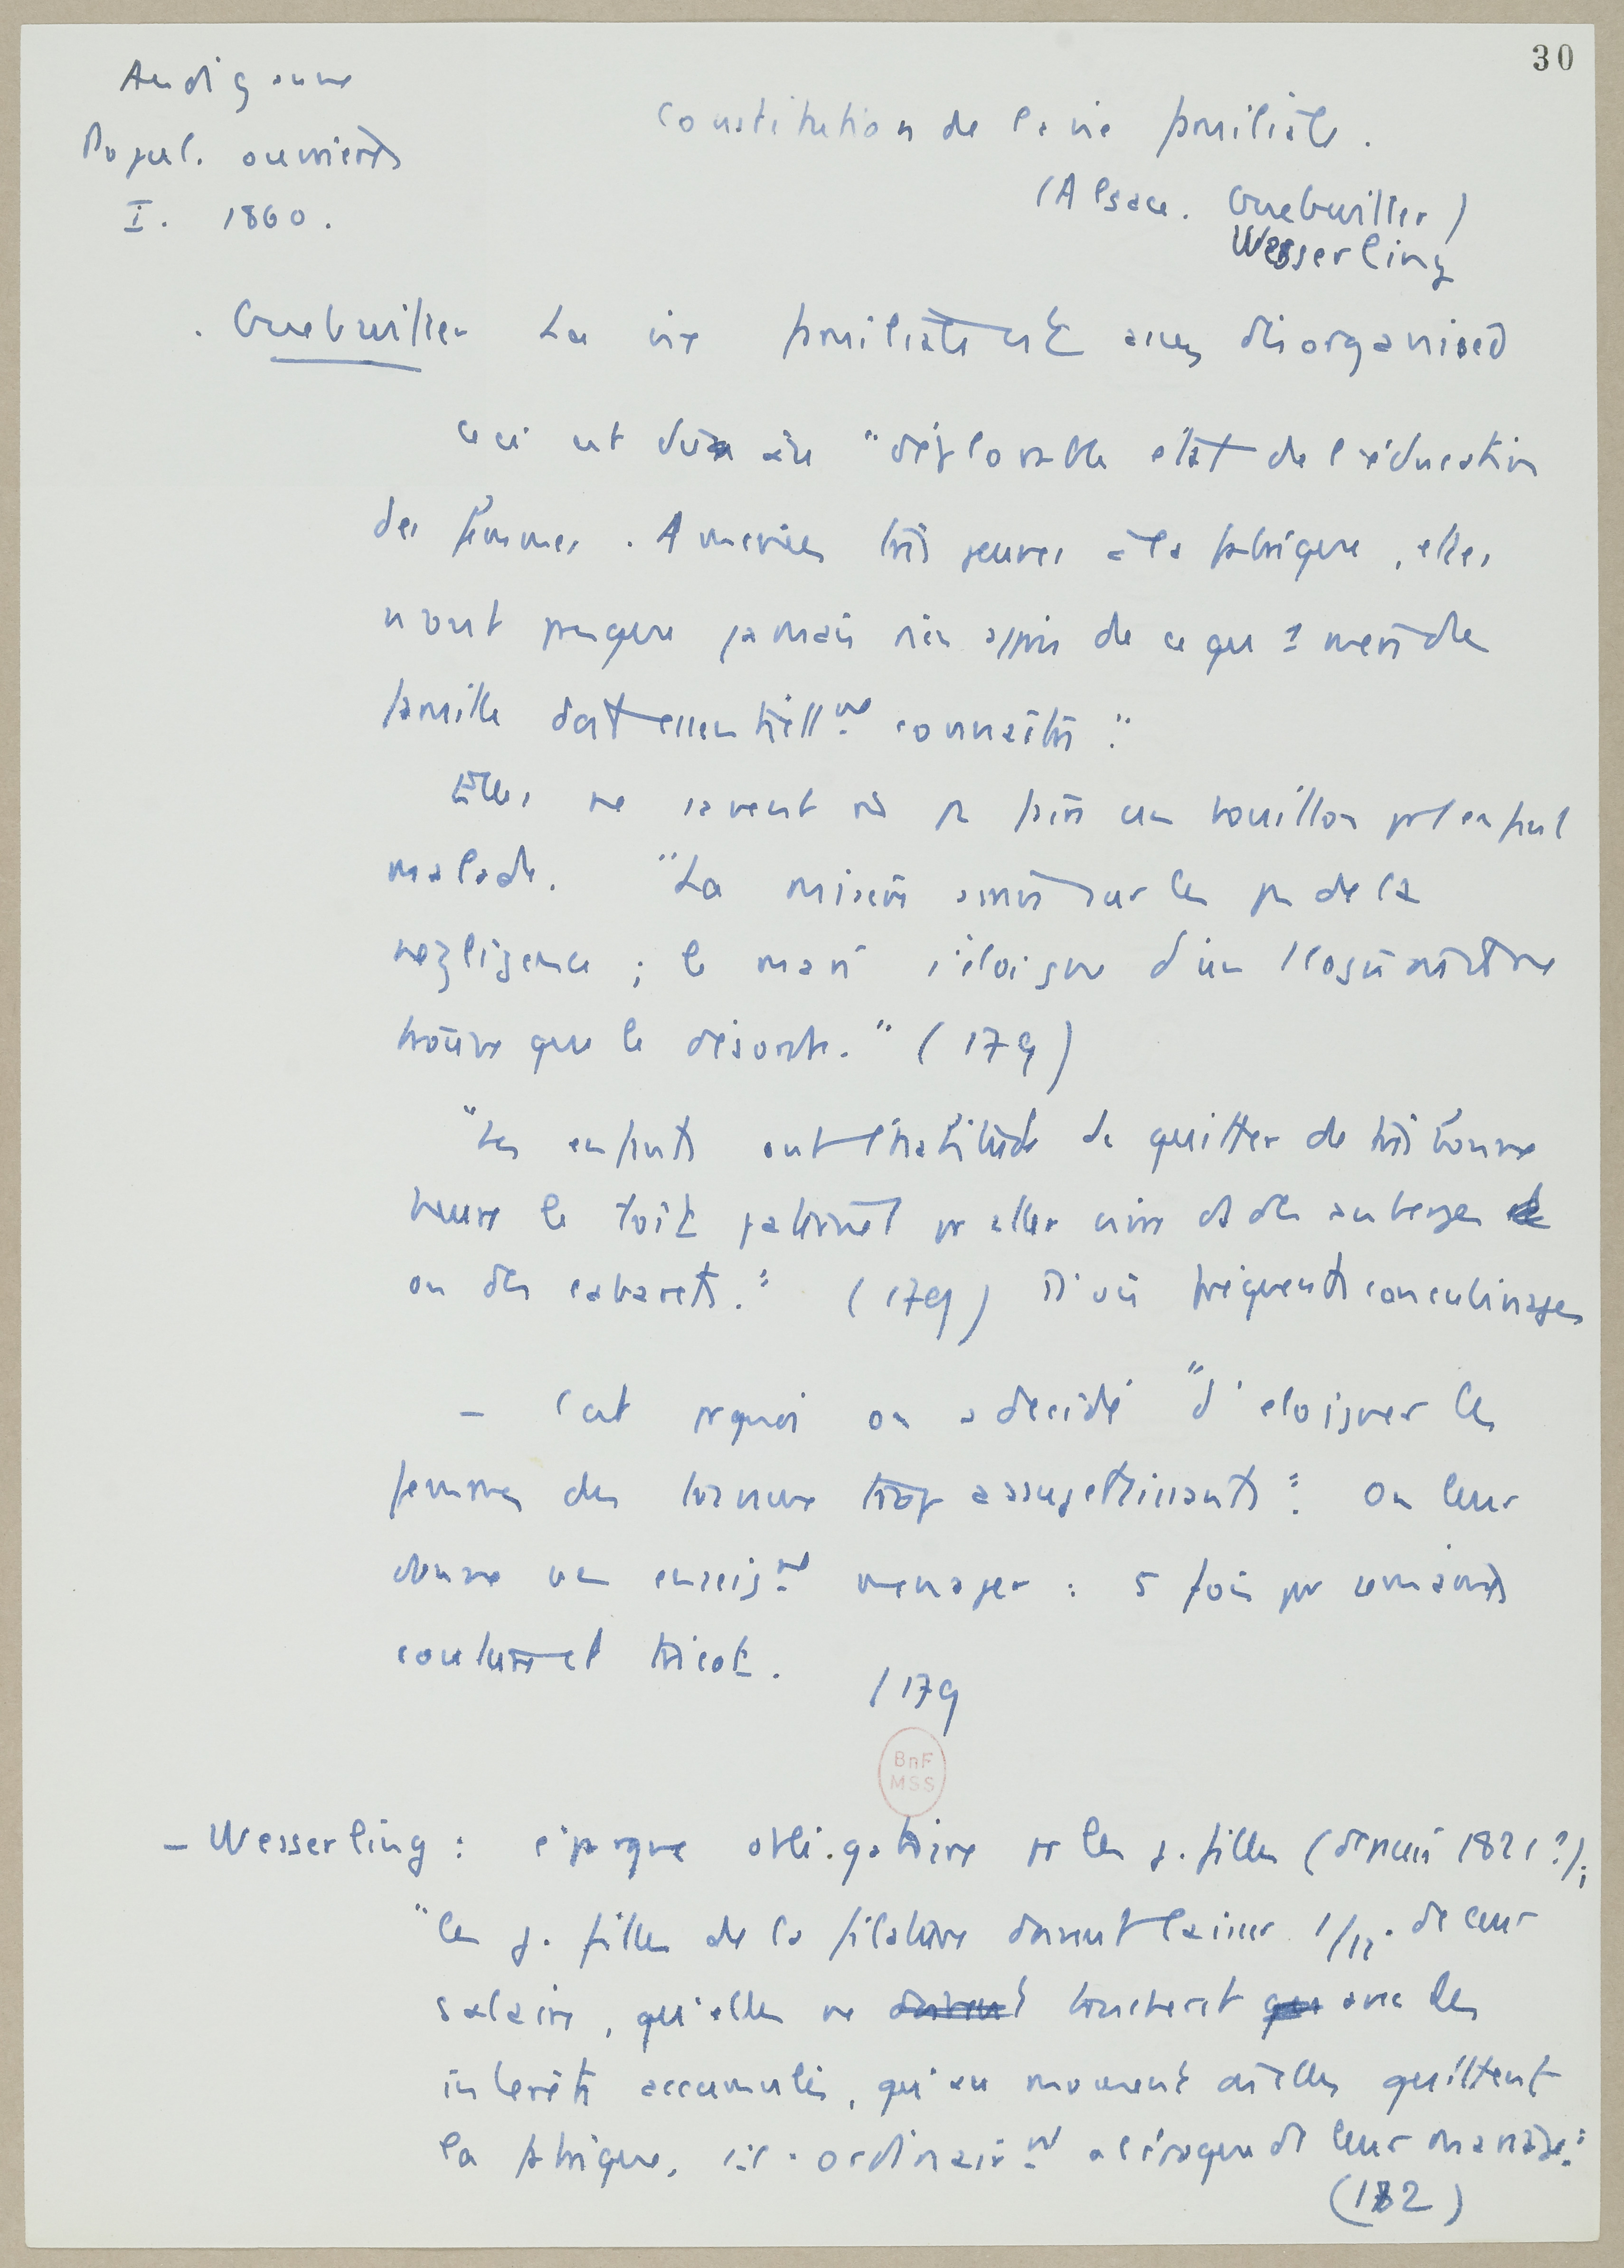 30
Audiganne
Popul. ouvrières
I. 1860.
Constitution de la vie familiale.
(Alsace. Guebwiller)
Wesserling
. Guebwiller La vie familiale est assez désorganisée
ceci est dû au "déplorable état de l'éducation
des femmes. Amenées très jeunes à la fabrique, elles
n'ont presque jamais rien appris de ce que 1 mère de
famille doit essentiellmt connaître".
Elles ne savent pas faire un bouillon pr 1 enfant
malade. "La misère arrive sur les pas de la
negligence ; le mari s'éloigne d'un logis où il ne
trouve que le désordre." (179)
"Les enfants ont l'habitude de quitter de très bonne
heure le toit paternel pr aller vivre ds des auberges
ou des cabarets." (179) D'où fréquents concubinages
– C'est pquoi on a décidé "d'eloigner les
femmes des travaux trop assujettissants". On leur
donne un enseigmt menager : 5 fois par semaine
couture et tricot.
/179
BnF
MSS
– Wesserling : épargne obligatoire pr les j. filles (depuis 1821?);
"les j. filles de la filature doivent laisser 1/12. de leur
salaire, qu'elles ne doivent toucheront que avec les
interêts accumulés, qu'au moment où elles quittent
la fabrique, i.e. ordinairmt à l'époque de leur mariage".
(182)